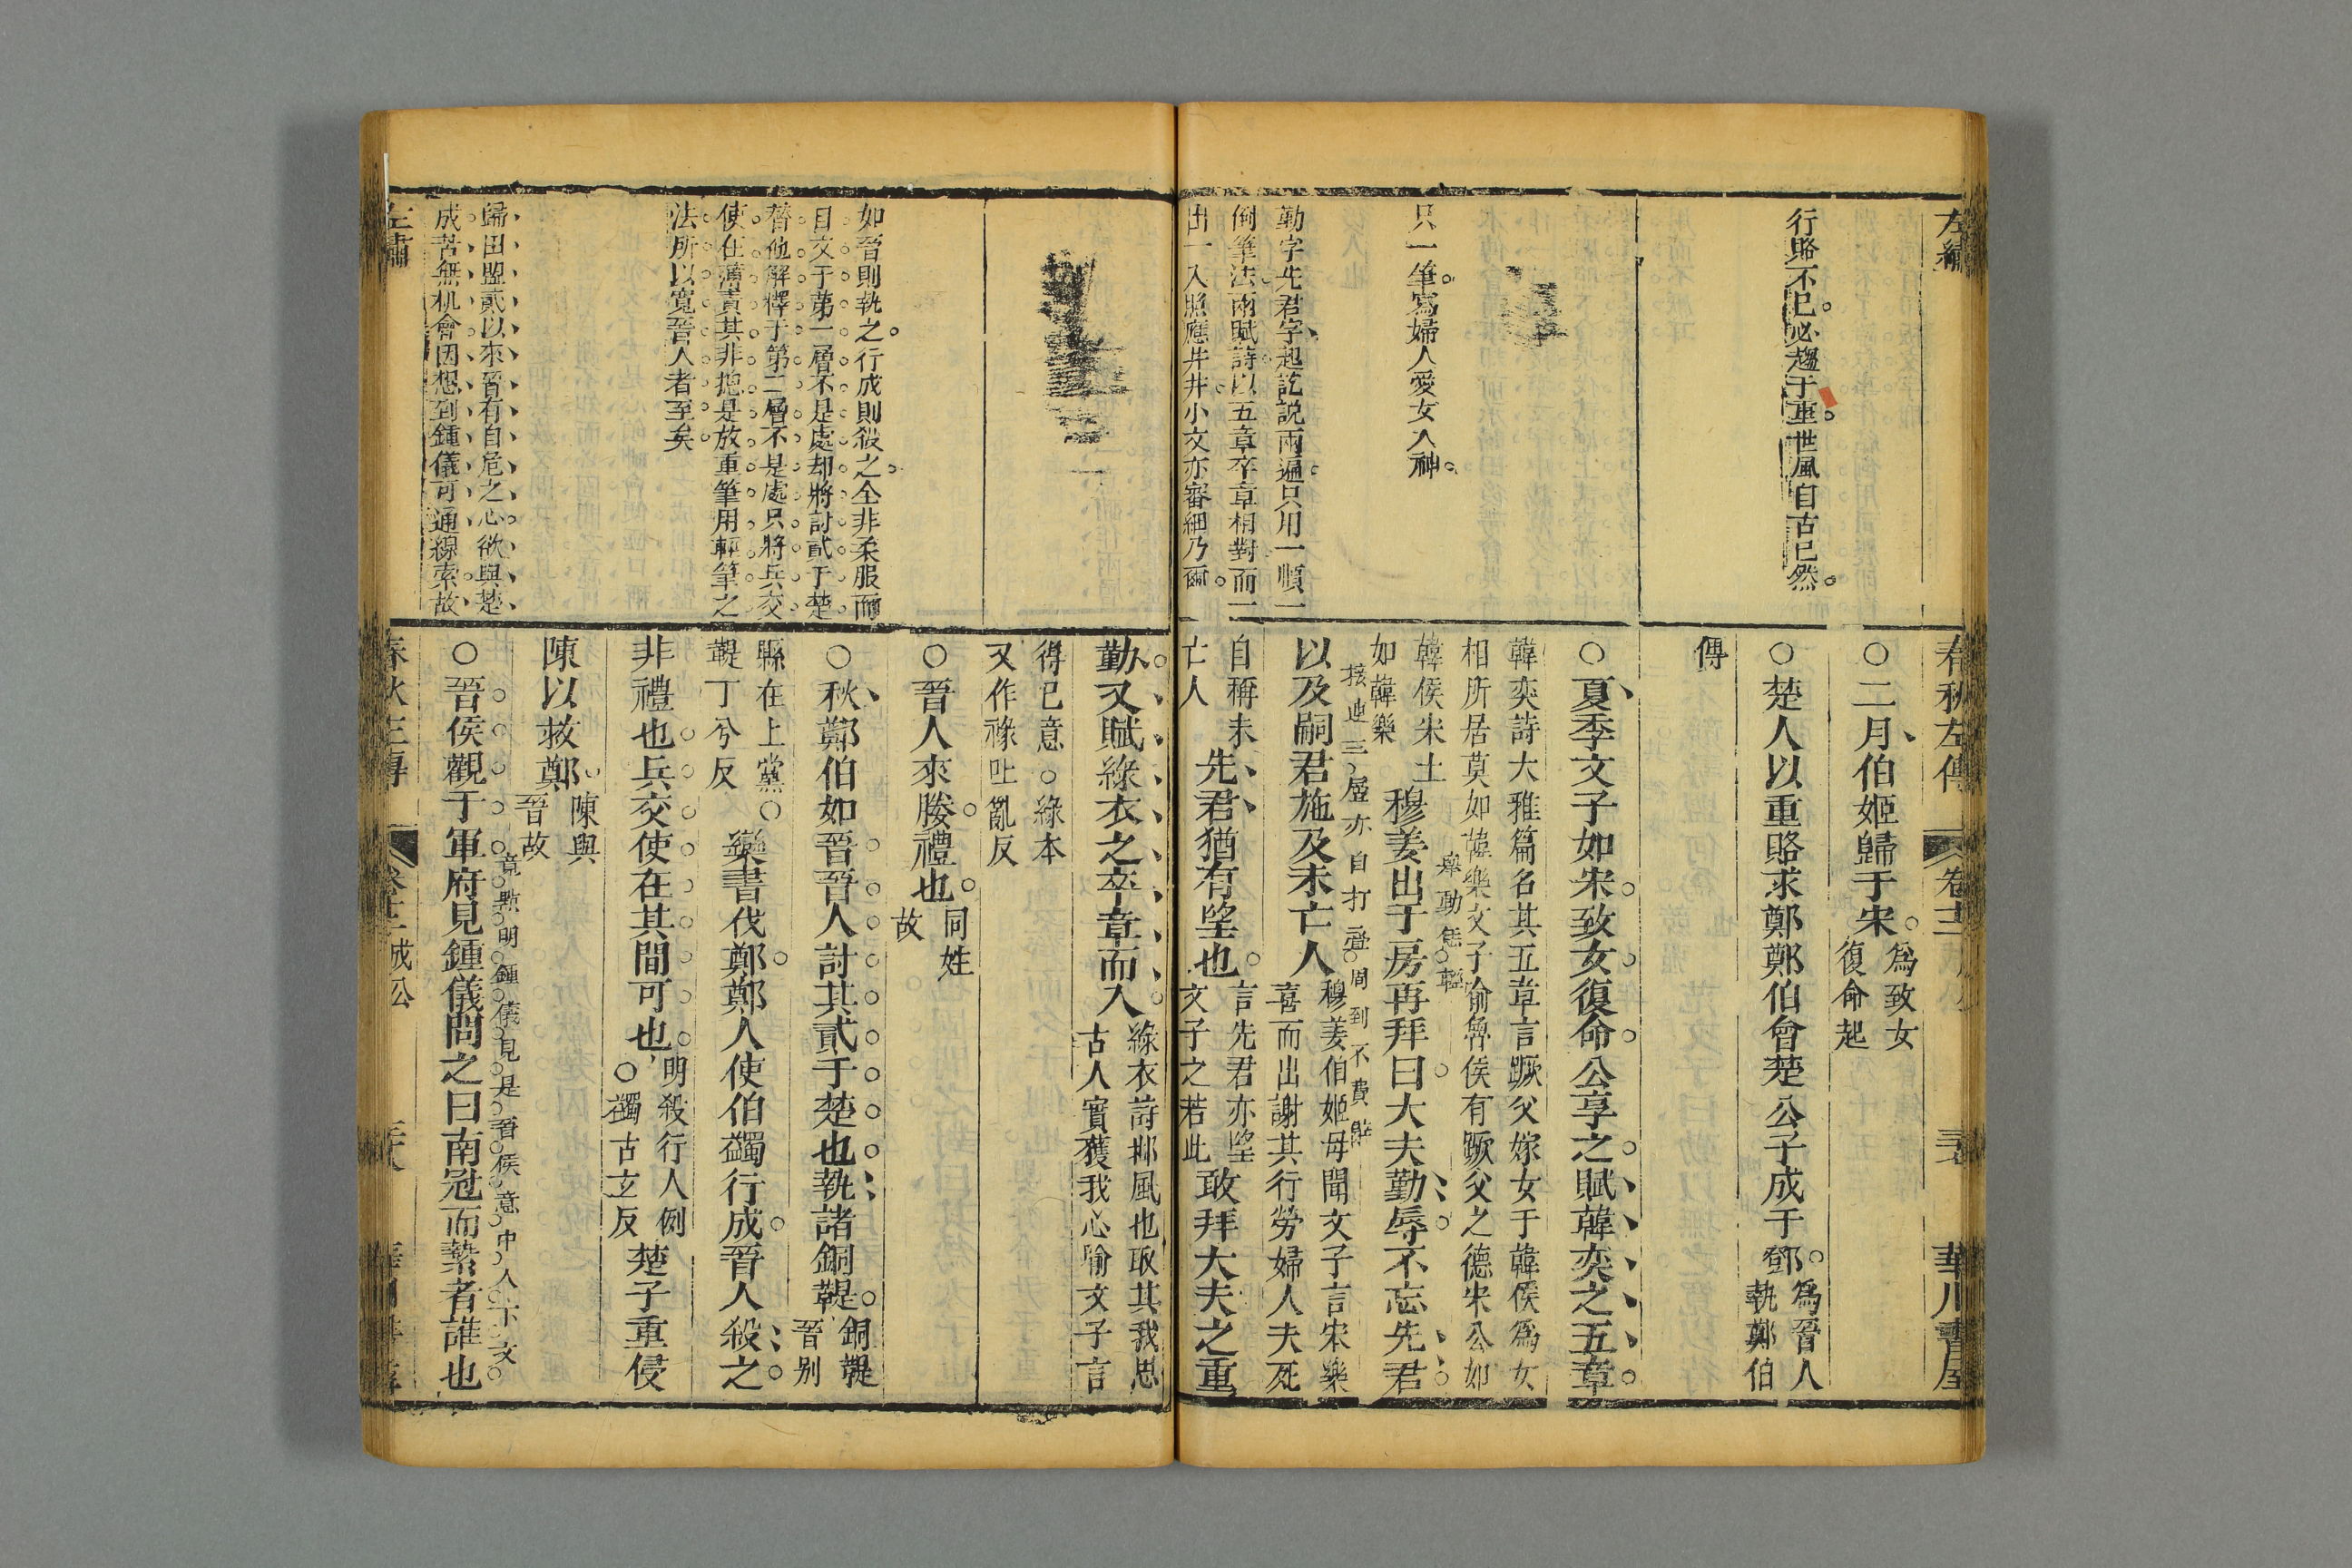 左繡
行賂不已必趨于重世風自古已然
只一筆寫婦人愛女入神
勤字先君字起訖説兩遍只用一順一
倒筆法兩賦詩以五章卒章相對而一
出一入照應井井小文亦審細乃爾
春秋左傳
卷十二
華川書屋
○二月伯姬歸于宋
爲致女
復命起
○楚人以重賂求鄭鄭伯會楚公子成于鄧
爲晉人
執鄭伯
傳
○夏季文子如宋致女復命公享之賦韓奕之五章
韓奕詩大雅篇名其五章言蹶父嫁女于韓侯爲女
相所居莫如韓樂文子喻魯侯有蹶父之德宋公如
韓侯宋土
如韓樂
穆姜出于房再拜曰大夫勤辱不忘先君
以及嗣君施及未亡人
穆姜伯姬母聞文子言宋樂
喜而出謝其行勞婦人夫死
自稱未
亡人
先君猶有望也
言先君亦望
文子之若此
敢拜大夫之重
如晉則執之行成則殺之全非柔服而
目文于第一層不是處却將討貳于楚
替他解釋于第二層不是處只將兵交
使在薄責其非總是放重筆用輕筆之
法所以寬晉人者至矣
歸田盟貳以來晉有自危之心欲與楚
成苦無机會因想到鍾儀可通線索故
勤又賦綠衣之卒章而入
綠衣詩邶風也取其我思
古人實獲我心喻文子言
得已意○綠本
又作祿吐亂反
○晉人來媵禮也
同姓
故
○秋鄭伯如晉晉人討其貳于楚也執諸銅鞮
銅鞮
晉别
縣在上黨○
鞮丁兮反
欒書伐鄭鄭人使伯蠲行成晉人殺之
非禮也兵交使在其間可也
明殺行人例
○蠲古玄反
楚子重侵
陳以救鄭
陳與
晉故
竟點明鍾儀見是晉侯意中人下文
○晉侯觀于軍府見鍾儀問之曰南冠而縶者誰也
左繡
成公